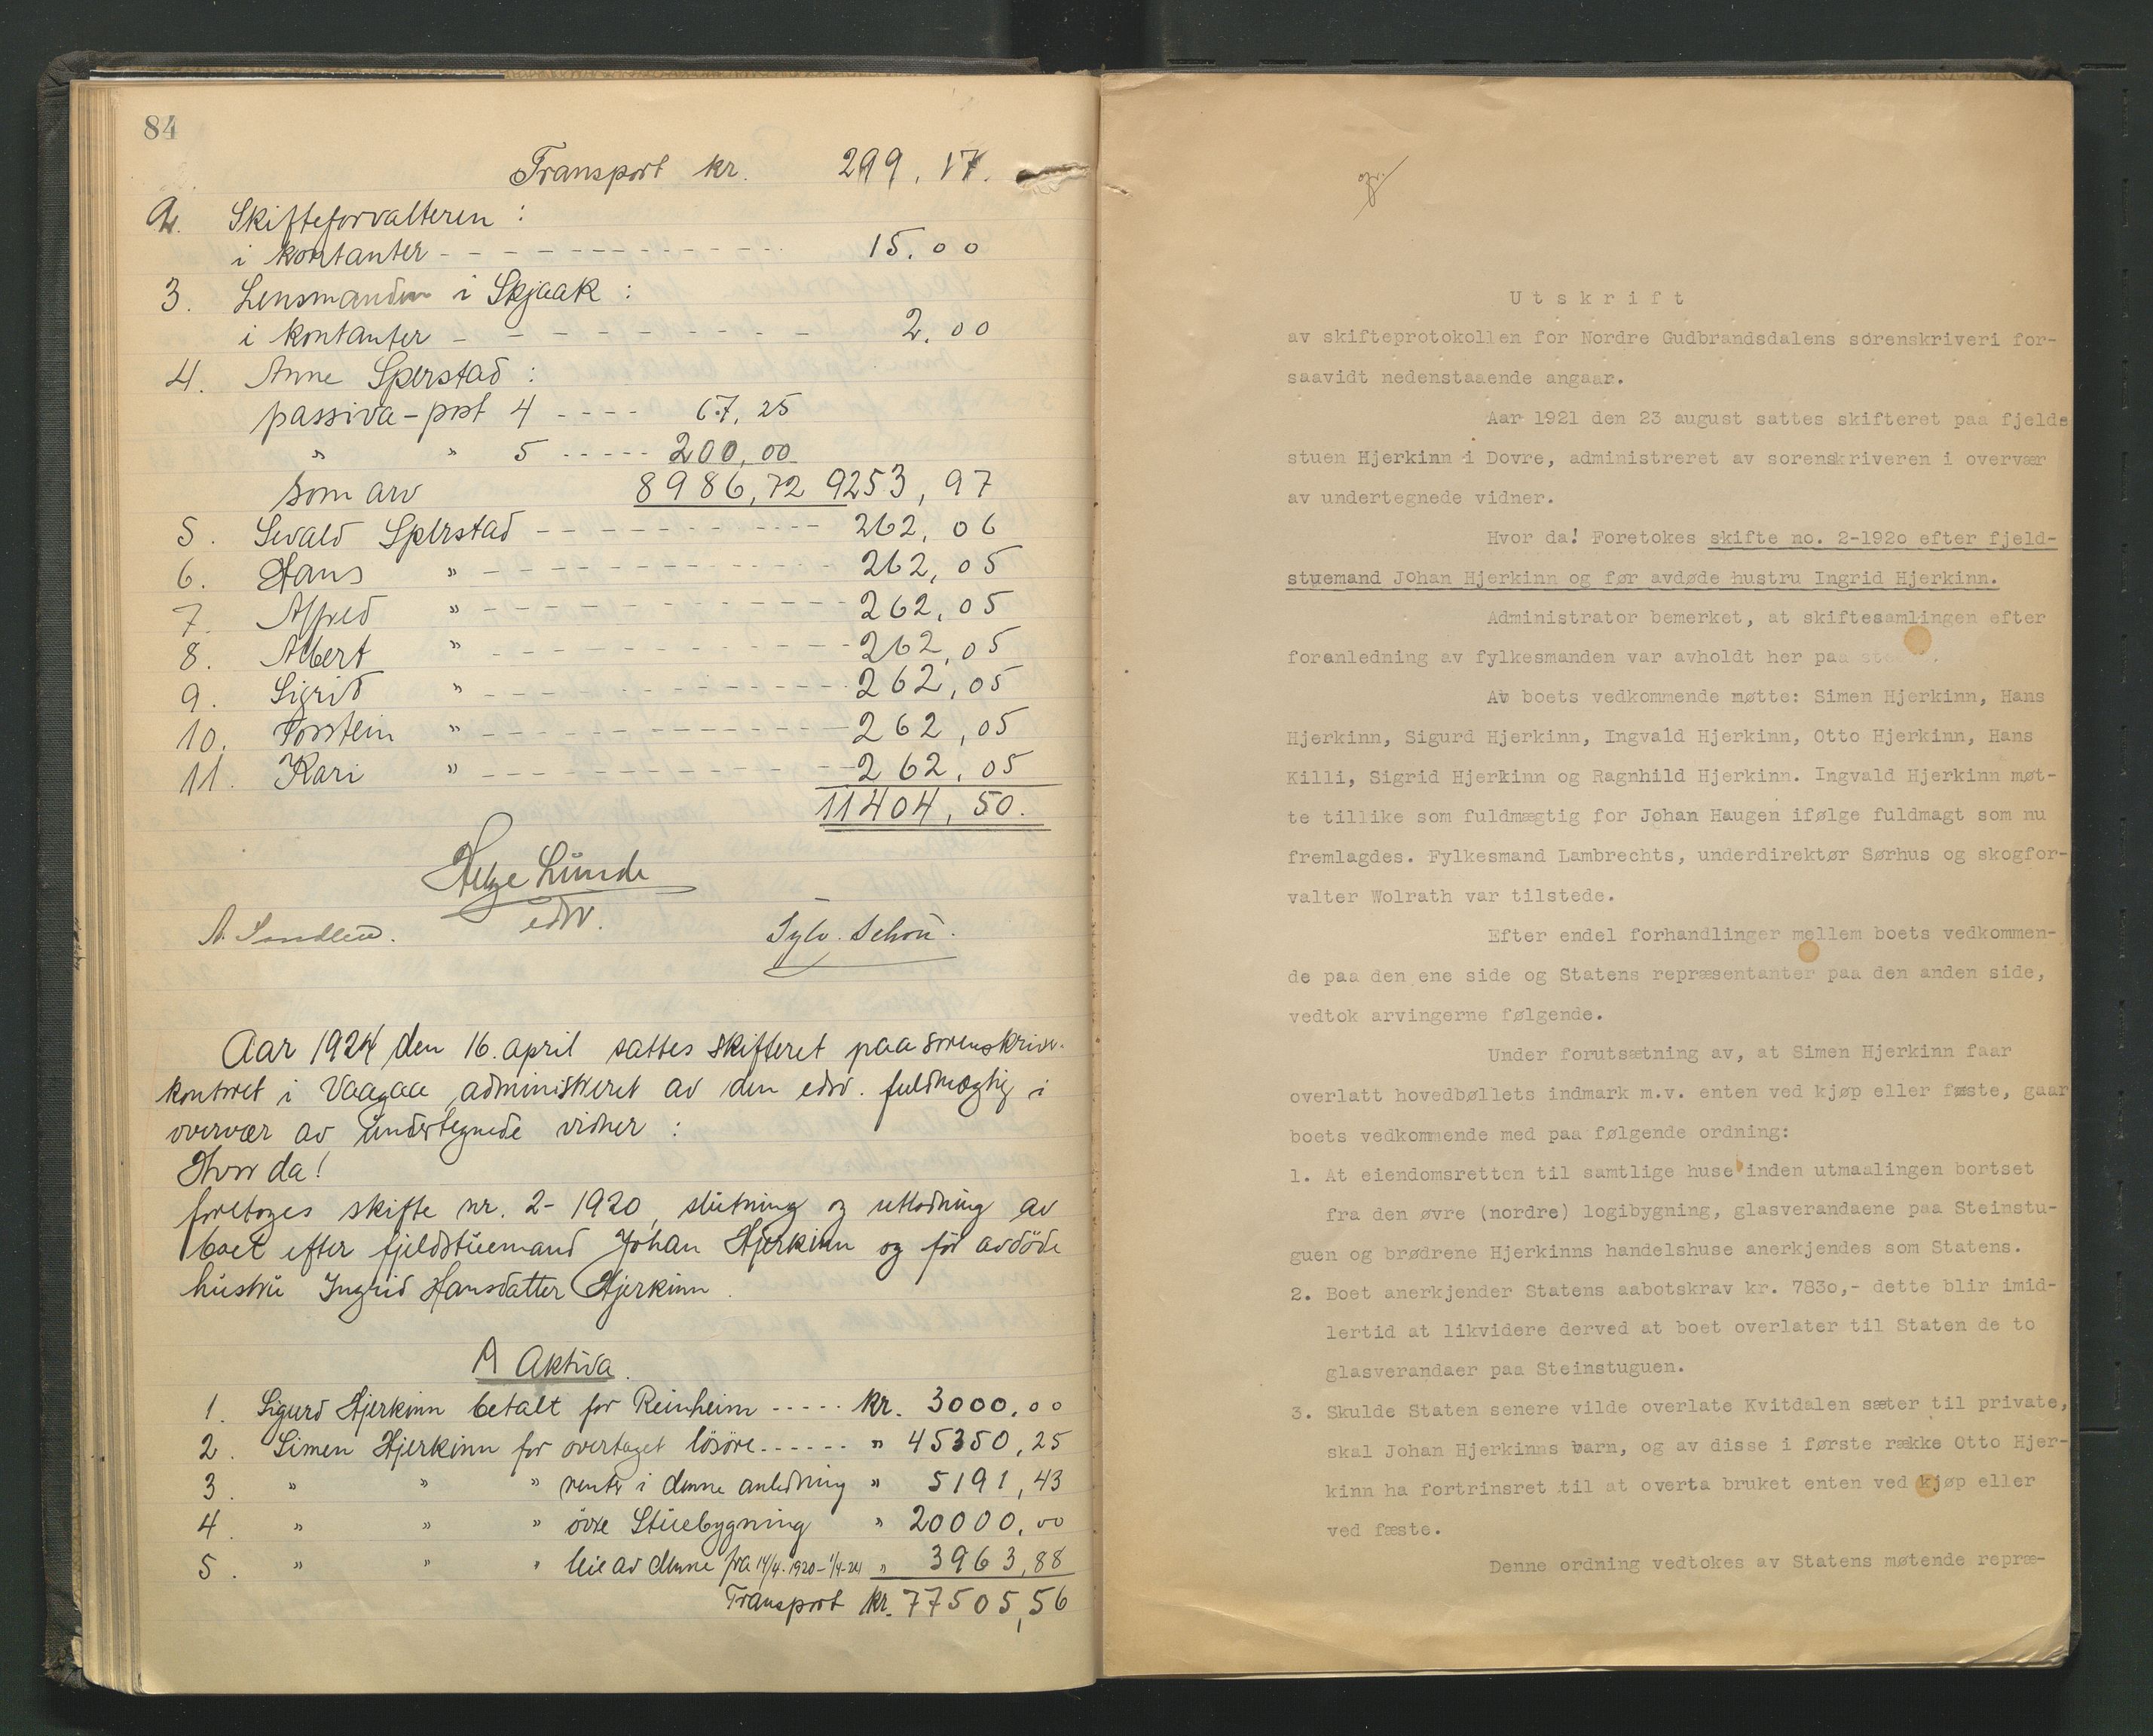 84
Transport kr. 299,17.
2. Skifteforvalteren :
i kontanter - - - - - - - - - - - 15.00
3. Lensmanden i Skjaak :
i kontanter - - - - - - - - - 2.00
4. Anne Sperstad :
passiva-post 4 - - - - 67,25
" " 5 - - - - - 200,00
som arv 8986,72 9253,97
5. Sevald Sperstad - - - - - - - - - - - 262,06
6. Hans " - - - - - - - - - - - - 262,05
7. Alfred " - - - - - - - - - - - - 262,05
8. Albert " - - - - - - - - - - - - 262,05
9. Sigrid " - - - - - - - - - - - - 262,05
10. Torstein " - - - - - - - - - - - - 262,05
11. Kari " - - - - - - - - - - - - 262,05
11404,50.
Helge Lunde
edsv.
Sylv. Schou.
Aar 1924 den 16. april sattes skifteret paa sorenskriver-
kontoret i Vaagaa, administreret av den edsv. fuldmægtig i
overvær av undertegnede vidner :
Hvor da!
foretoges skifte nr. 2-1920, slutning og utlodning av
boet efter fjeldstuemand Johan Hjerkinn og før avdøde
hustru Ingrid Hansdatter Hjerkinn.
A Aktiva.
1. Sigurd Hjerkinn betalt for Reinheim - - - - - kr. 3000.00
2. Simen Hjerkinn for overtaget løsøre - - - - - - " 45350,25
3. " " " renter i denne anledning " 5191,43
4. " " " øvre Stuebygning " 20000.00
5. " " " leie av denne fra 14/4.1920-1/4-24 " 3963,88
Transport kr. 77505,56
Utskrift
av skifteprotokollen for Nordre Gudbrandsdalens sorenskriveri for-
saavidt nedenstaaende angaar.
Aar 1921 den 23 august sattes skifteret paa fjelde
stuen Hjerkinn i Dovre, administreret av sorenskriveren i overvær
av undertegnede vidner.
Hvor da! Foretokes skifte no. 2-1920 efter fjeld-
stuemand Johan Hjerkinn og før avdøde hustru Ingrid Hjerkinn.
Administrator bemerket, at skiftesamlingen efter
foranledning av fylkesmanden var avholdt her paa
Av boets vedkommende møtte: Simen Hjerkinn, Hans
Hjerkinn, Sigurd Hjerkinn, Ingvald Hjerkinn, Otto Hjerkinn, Hans
Killi, Sigrid Hjerkinn og Ragnhild Hjerkinn. Ingvald Hjerkinn møt-
te tillike som fuldmægtig for Johan Haugen ifølge fuldmagt som nu
fremlagdes. Fylkesmand Lambrechts, underdirektør Sørhus og skogfor-
valter Wolrath var tilstede.
Efter endel forhandlinger mellem boets vedkommen-
de paa den ene side og Statens repræsentanter paa den anden side,
vedtok arvingerne følgende.
Under forutsætning av, at Simen Hjerkinn faar
overlatt hovedbøllets indmark m.v. enten ved kjøp eller fæste, gaar
boets vedkommende med paa følgende ordning:
1. At eiendomsretten til samtlige huse inden utmaalingen bortset
fra den øvre (nordre) logibygning, glasverandaene paa Steinstu-
guen og brødrene Hjerkinns handelshuse anerkjendes som Statens.
2. Boet anerkjender Statens aabotskrav kr. 7830,- dette blir imid-
lertid at likvidere derved at boet overlater til Staten de to
glasverandaer paa Steinstuguen.
3. Skulde Staten senere vilde overlate Kvitdalen sæter til private,
skal Johan Hjerkinns barn, og av disse i første række Otto Hjer-
kinn ha fortrinsret til at overta bruket enten ved kjøp eller
ved fæste.
Denne ordning vedtokes av Statens møtende repræ-